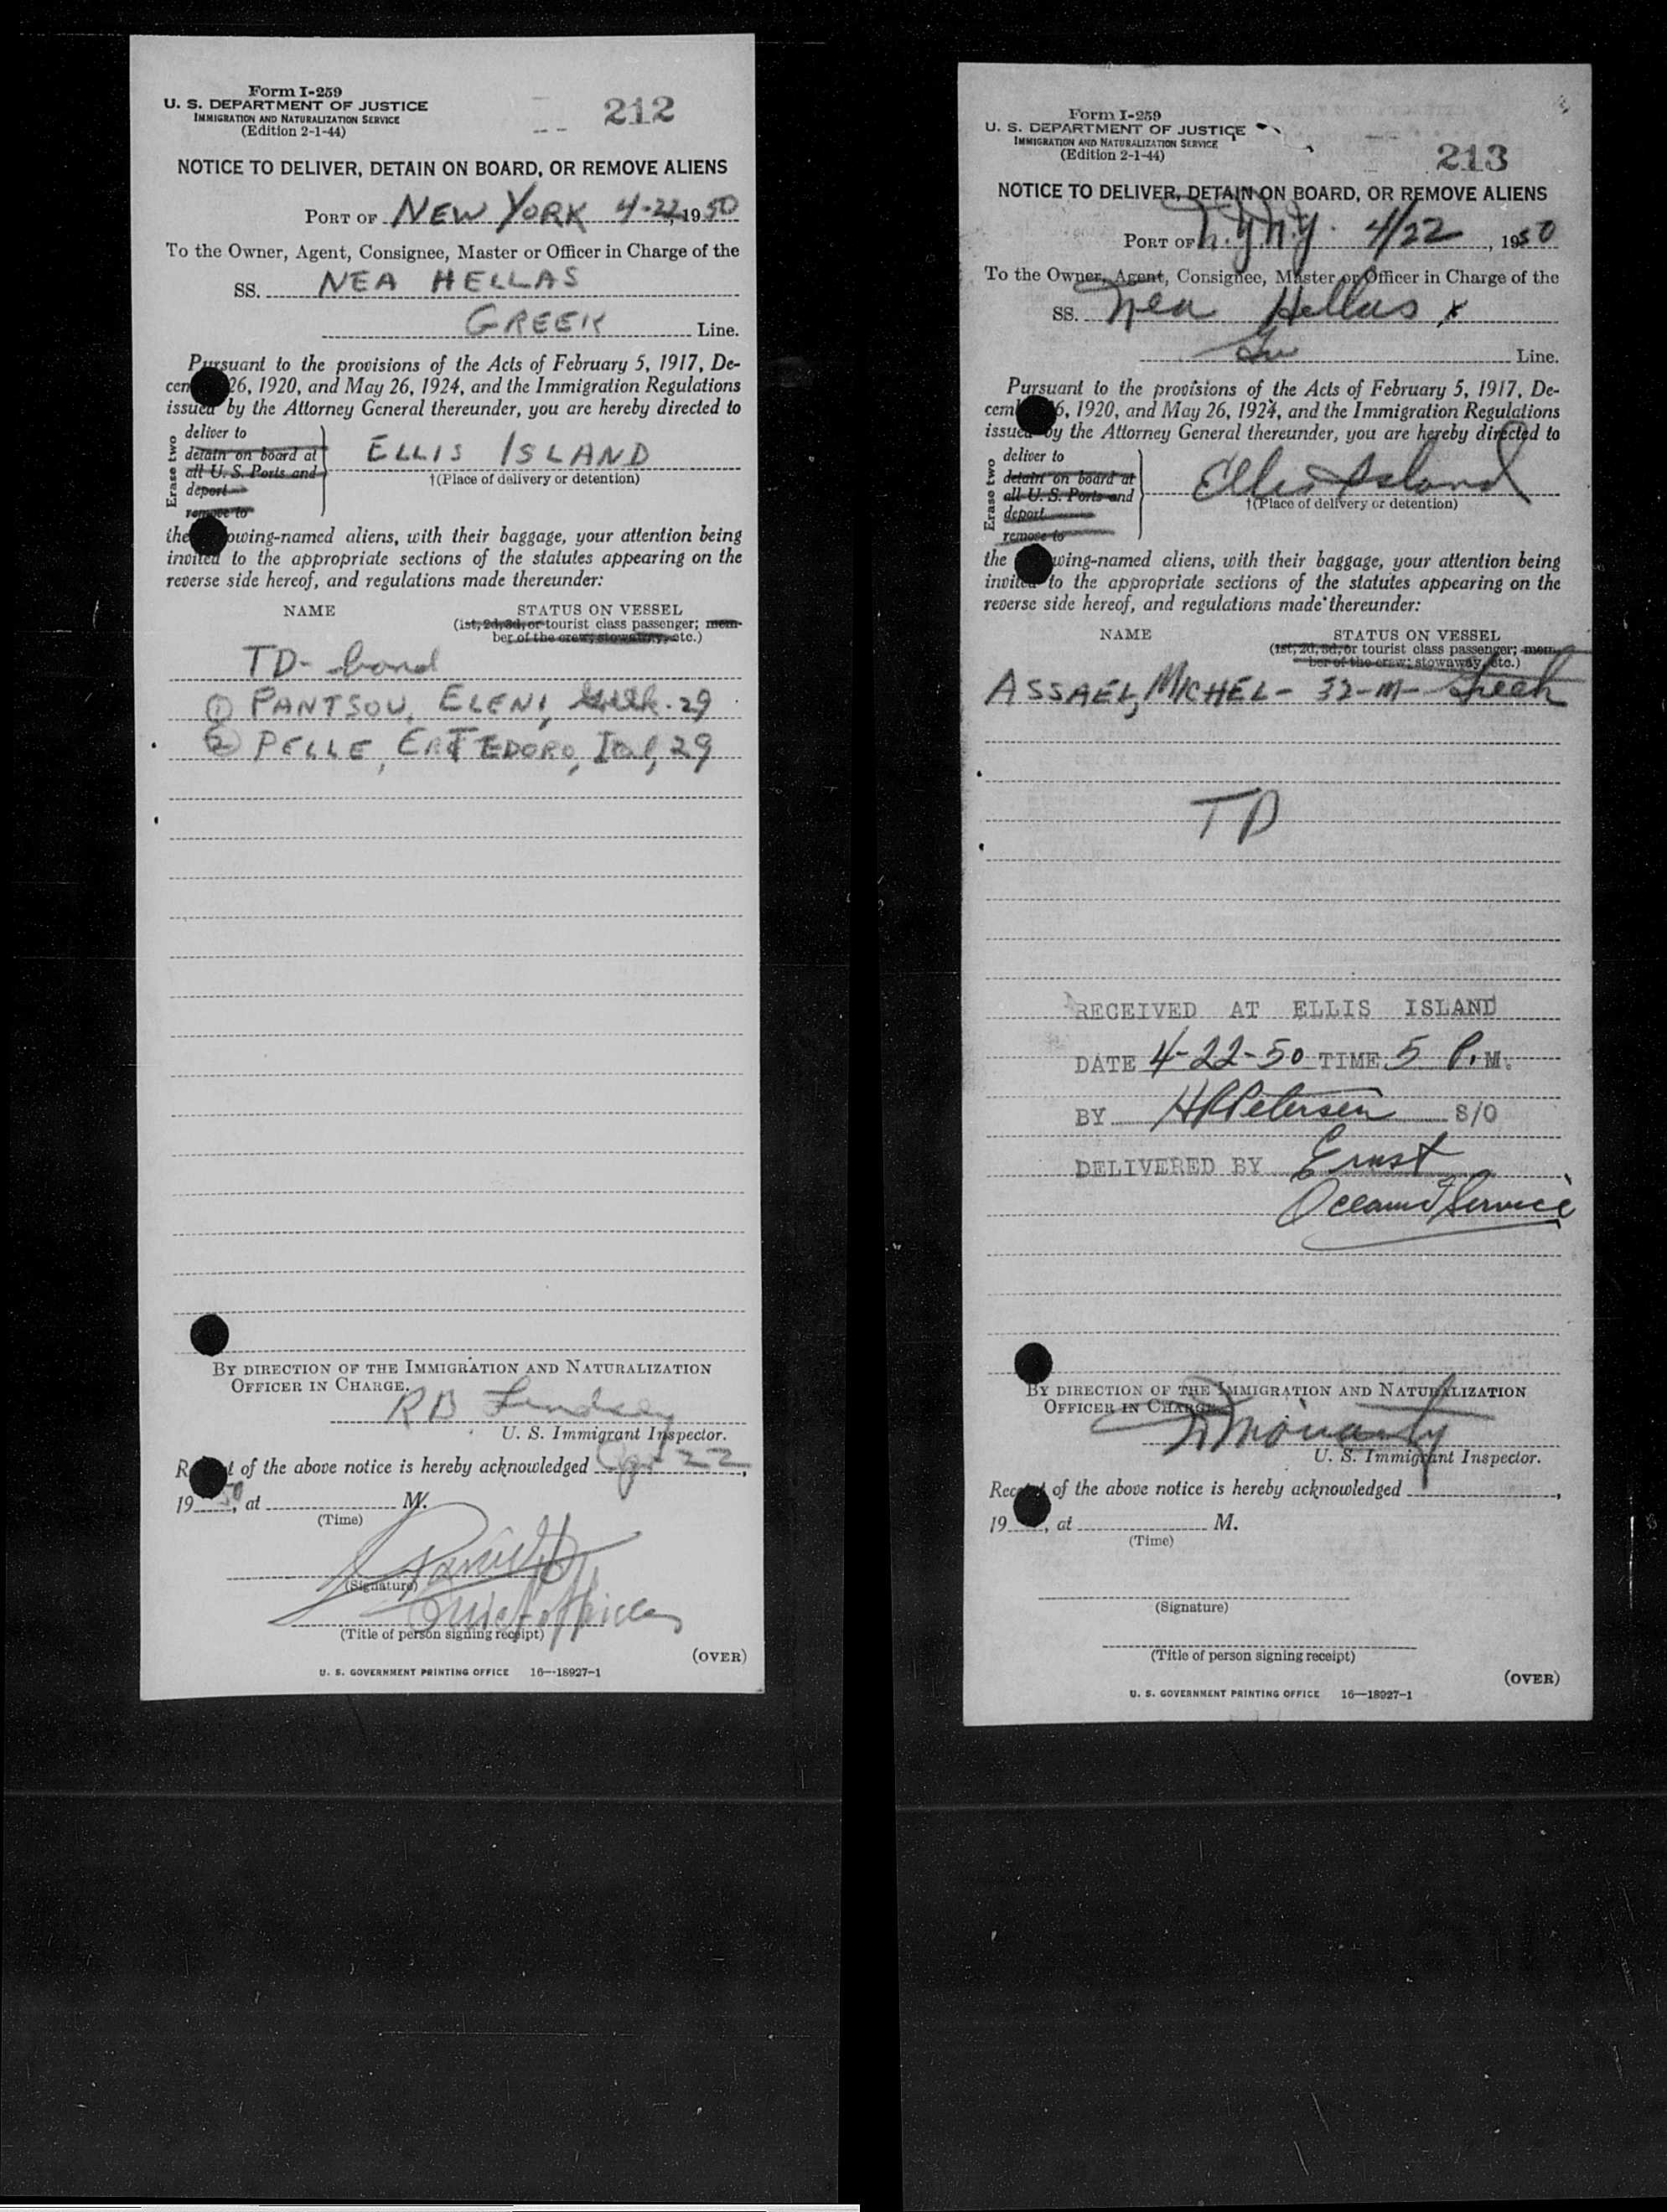 Form I-259
U. S. DEPARTMENT OF JUSTICE
IMMIGRATION AND NATURALIZATION SERVICE
(Edition 2-1-44)
212
NOTICE TO DELIVER, DETAIN ON BOARD, OR REMOVE ALIENS
PORT OF NEW YORK 4-22, 1950
To the Owner, Agent, Consignee, Master or Officer in Charge of the
SS. NEA HELLAS
GREEK Line.
Pursuant to the provisions of the Acts of February 5, 1917, De-
cem 26, 1920, and May 26, 1924, and the Immigration Regulations
issued by the Attorney General thereunder, you are hereby directed to
Erase two
deliver to
detain on board at
all U. S. Ports and
deport
remove to
ELLIS ISLAND
†(Place of delivery or detention)
the owing-named aliens, with their baggage, your attention being
invited to the appropriate sections of the statutes appearing on the
reverse side hereof, and regulations made thereunder:
NAME
STATUS ON VESSEL
(1st, 2d, 3d, or tourist class passenger; mem-
ber of the crew; stowaway, etc.)
TD- bond
① PANTSOU, ELENI, Greek-29
② PELLE, Ital, 29
BY DIRECTION OF THE IMMIGRATION AND NATURALIZATION
OFFICER IN CHARGE.
R B Lindsey
U. S. Immigrant Inspector.
R t of the above notice is hereby acknowledged Apr 22,
1950, at M.
(Time)
(Signature)
(Title of person signing receipt)
(OVER)
U. S. GOVERNMENT PRINTING OFFICE 16—18927-1
Form I-259
U. S. DEPARTMENT OF JUSTICE
IMMIGRATION AND NATURALIZATION SERVICE
(Edition 2-1-44)
213
NOTICE TO DELIVER, DETAIN ON BOARD, OR REMOVE ALIENS
PORT OF N.Y.N.Y. 4/22, 1950
To the Owner, Agent, Consignee, Master or Officer in Charge of the
SS. Nea Hellas x
Gr Line.
Pursuant to the provisions of the Acts of February 5, 1917, De-
cemb 6, 1920, and May 26, 1924, and the Immigration Regulations
issued by the Attorney General thereunder, you are hereby directed to
Erase two
deliver to
detain on board at
all U. S. Ports and
deport
remove to
Ellis Island
†(Place of delivery or detention)
the wing-named aliens, with their baggage, your attention being
invited to the appropriate sections of the statutes appearing on the
reverse side hereof, and regulations made thereunder:
NAME
STATUS ON VESSEL
(1st, 2d, 3d, or tourist class passenger; mem-
ber of the crew; stowaway, etc.)
ASSAEL, MICHEL - 32-M- Greek
TD
RECEIVED AT ELLIS ISLAND
DATE 4-22-50 TIME 5 P.M.
BY HR Petersen S/O
DELIVERED BY Ernst
Ocean Service
BY DIRECTION OF THE IMMIGRATION AND NATURALIZATION
OFFICER IN CHARGE.
U. S. Immigrant Inspector.
Rece of the above notice is hereby acknowledged ,
19 , at M.
(Time)
(Signature)
(Title of person signing receipt)
(OVER)
U. S. GOVERNMENT PRINTING OFFICE 16—18927-1